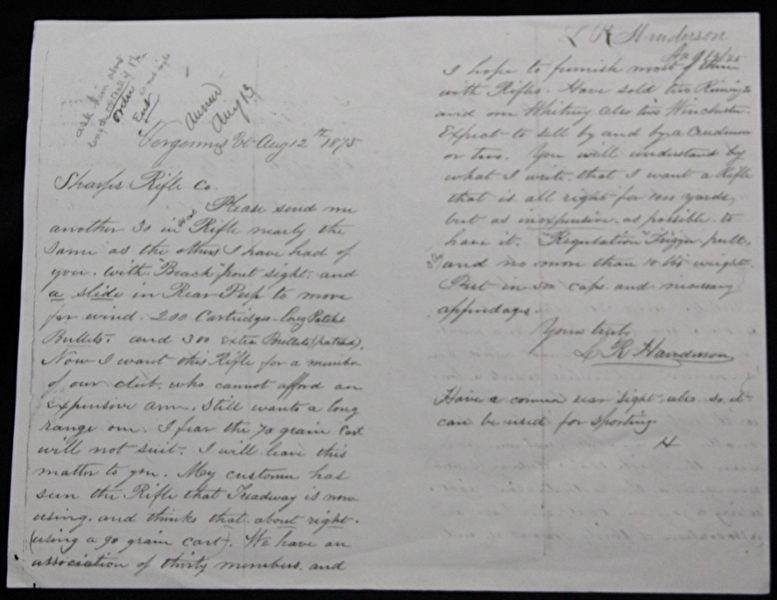 ask him about
length
order
Ent
Answd
Aug 13
Vergennes Vt Aug 12th 1875
Sharps Rifle Co.
Please send me
another 30 in Rifle nearly the
same as the others I have had of
you. with "Beach" front sight. and
a slide in Rear Peep to move
for wind. 200 Cartridges - long Patched
Bullets. and 300 extra Bullets (patched).
Now I want this Rifle for a member
of our club, who cannot afford an
expensive arm. Still wants a long
range one. I fear the 70 grain Cart
will not suit. I will leave this
matter to you. My customer has
seen the Rifle that Treadway is now
using. and thinks that about right.
(using a 90 grain cart). We have an
association of thirty members. and
L R Henderson
Aug 12/75
I hope to furnish most of them
with Rifles. Have sold two
and one Whitney also two Winchester
Expect to sell by and by a
or two. You will understand by
what I write. that I want a Rifle
that is all right for 1000 yards,
but as inexpensive as possible to
have it. "Regulation" trigger pull.
and no more than 10 lbs weight.
Put in 500 caps. and necessary
appendages.
Yours truly
L R Henderson
Have a common rear sight. also. so it
can be used for sporting.
H